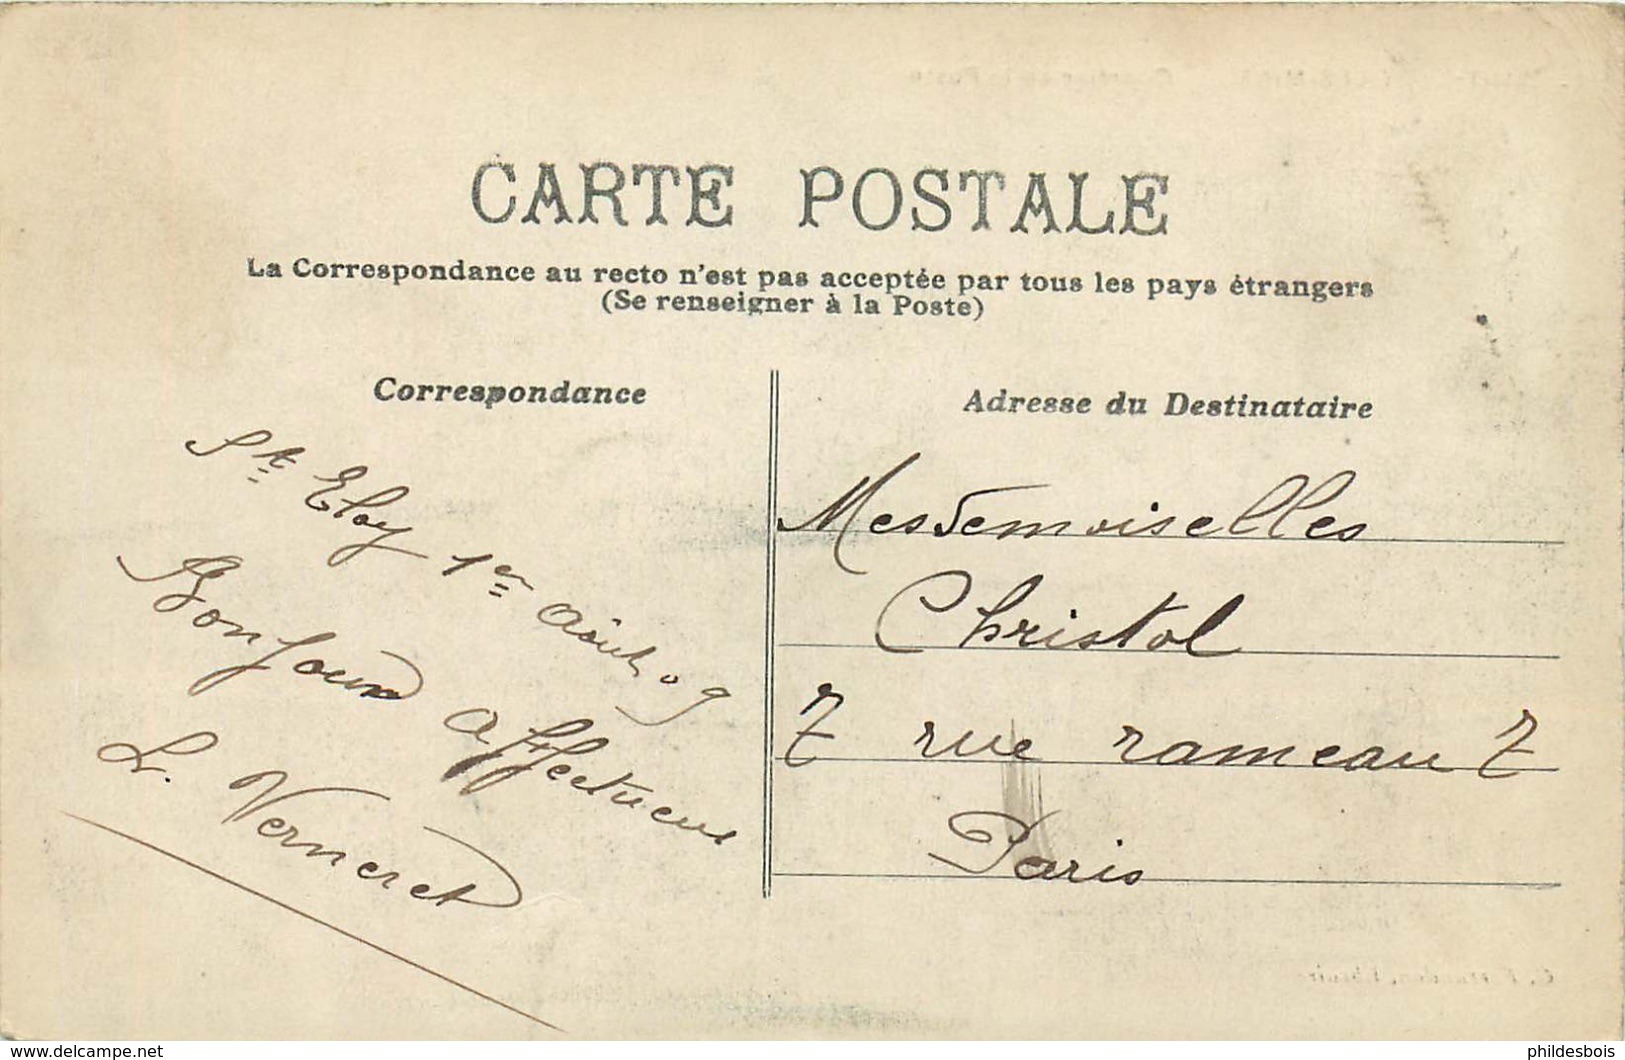 CARTE POSTALE
La Correspondance au recto n'est pas acceptée par tous les pays étrangers
(Se renseigner à la Poste)
Correspondance
St Eloy 1er Août 09
Bonjour affectueux
L. Verneret
Adresse du Destinataire
Mesdemoiselles
Christol
7 rue rameau 7
Paris
www.delcampe.net
phildesbois